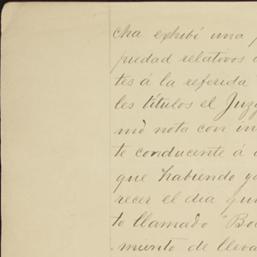 cha exhibí una
piedad relativos
tes á la referida
les títulos el Juz
mó nota con in
te conducente á
que habiendo
recer el dia
to llamado "Bo
miento de lleva